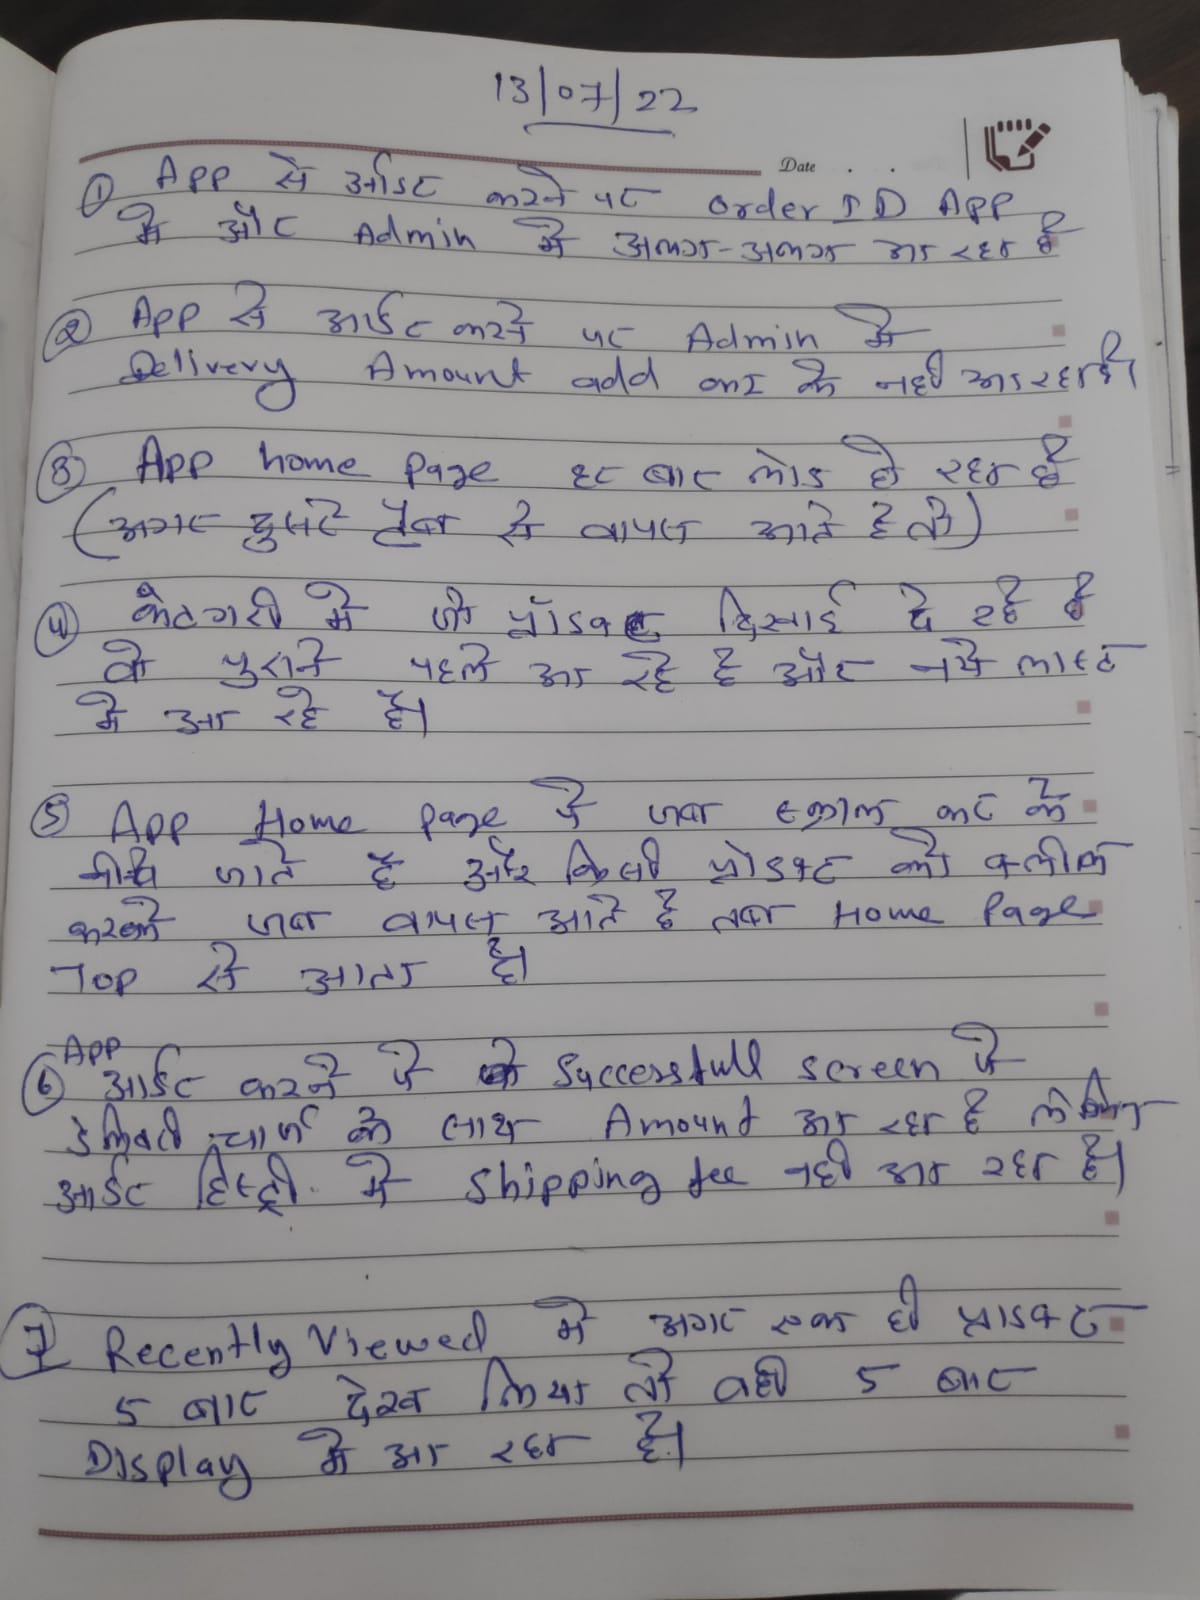 13/07/22
Date . . .
① App से ऑर्डर करने पर order ID App
में और Admin में अलग-अलग आ रहा है
② App से आर्डर करने पर Admin में
Delivery Amount add कर के नही आ रहा है।
③ App home page हर बार लोड हो रहा है
(अगर दुसरे टैब से वापस आते है तो)
④ केटगरी में जो प्रॉडक्ट दिखाई दे रहे है
वो पुराने पहले आ रहे है और नये लास्ट
में आ रहे है।
⑤ App Home page पे जब स्क्रोल कर के
नीचे जाते है और किसी प्रोडक्ट को क्लीक
करके जब वापस आते है तब Home Page
Top से आता है।
App
⑥ आर्डर करने पे Successfull screen पे
डेलिवरी चार्ज के साथ Amount आ रहा है लेकिन
आर्डर हिस्ट्री में shipping fee नही आ रहा है।
⑦ Recently Viewed में अगर एक ही प्राडक्ट
5 बार देख लिया तो वही 5 बार
Display में आ रहा है।